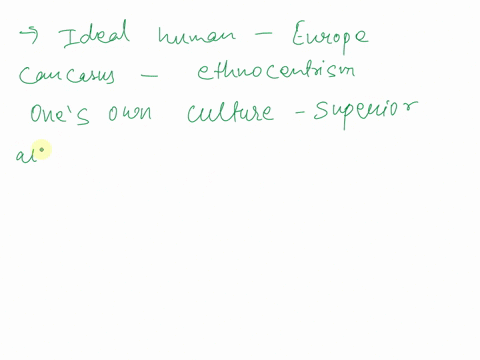 → Ideal human - Europe
Caucasus - ethnocentrism
One's own culture - superior
al